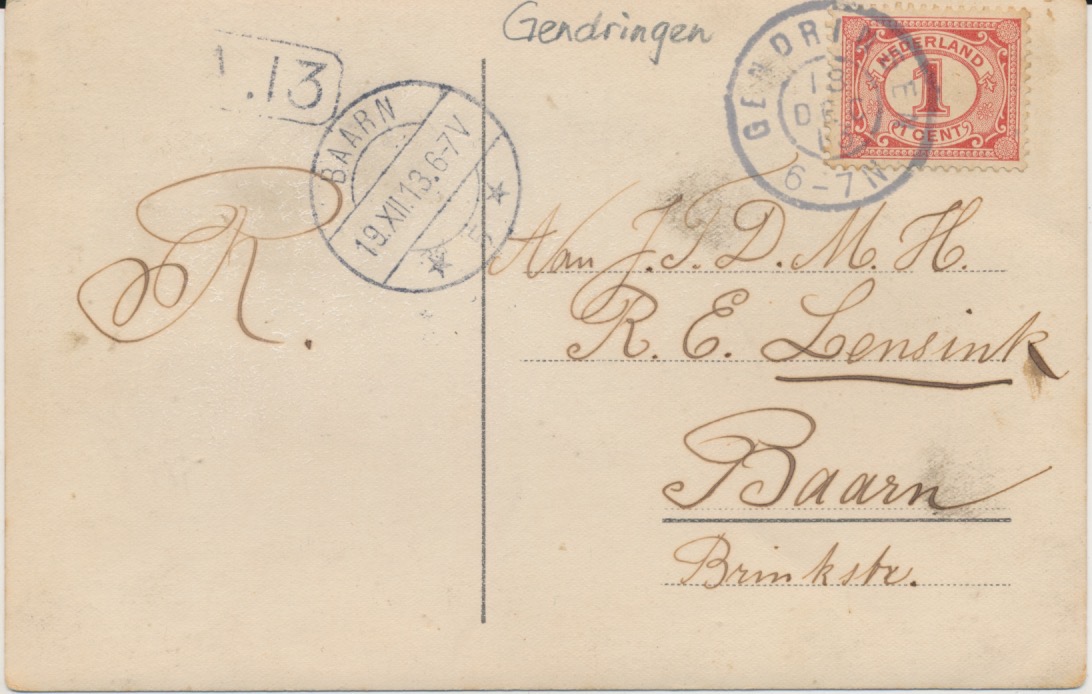 Gendringen
.13
BAARN
19.XII.13.6-7V
5
GENDRINGEN
18
DEC
6-7N
NEDERLAND
1
1 CENT
R.
Aan J.J.D.M.H.
R. E. Lensink
Baarn
Brinkstr.